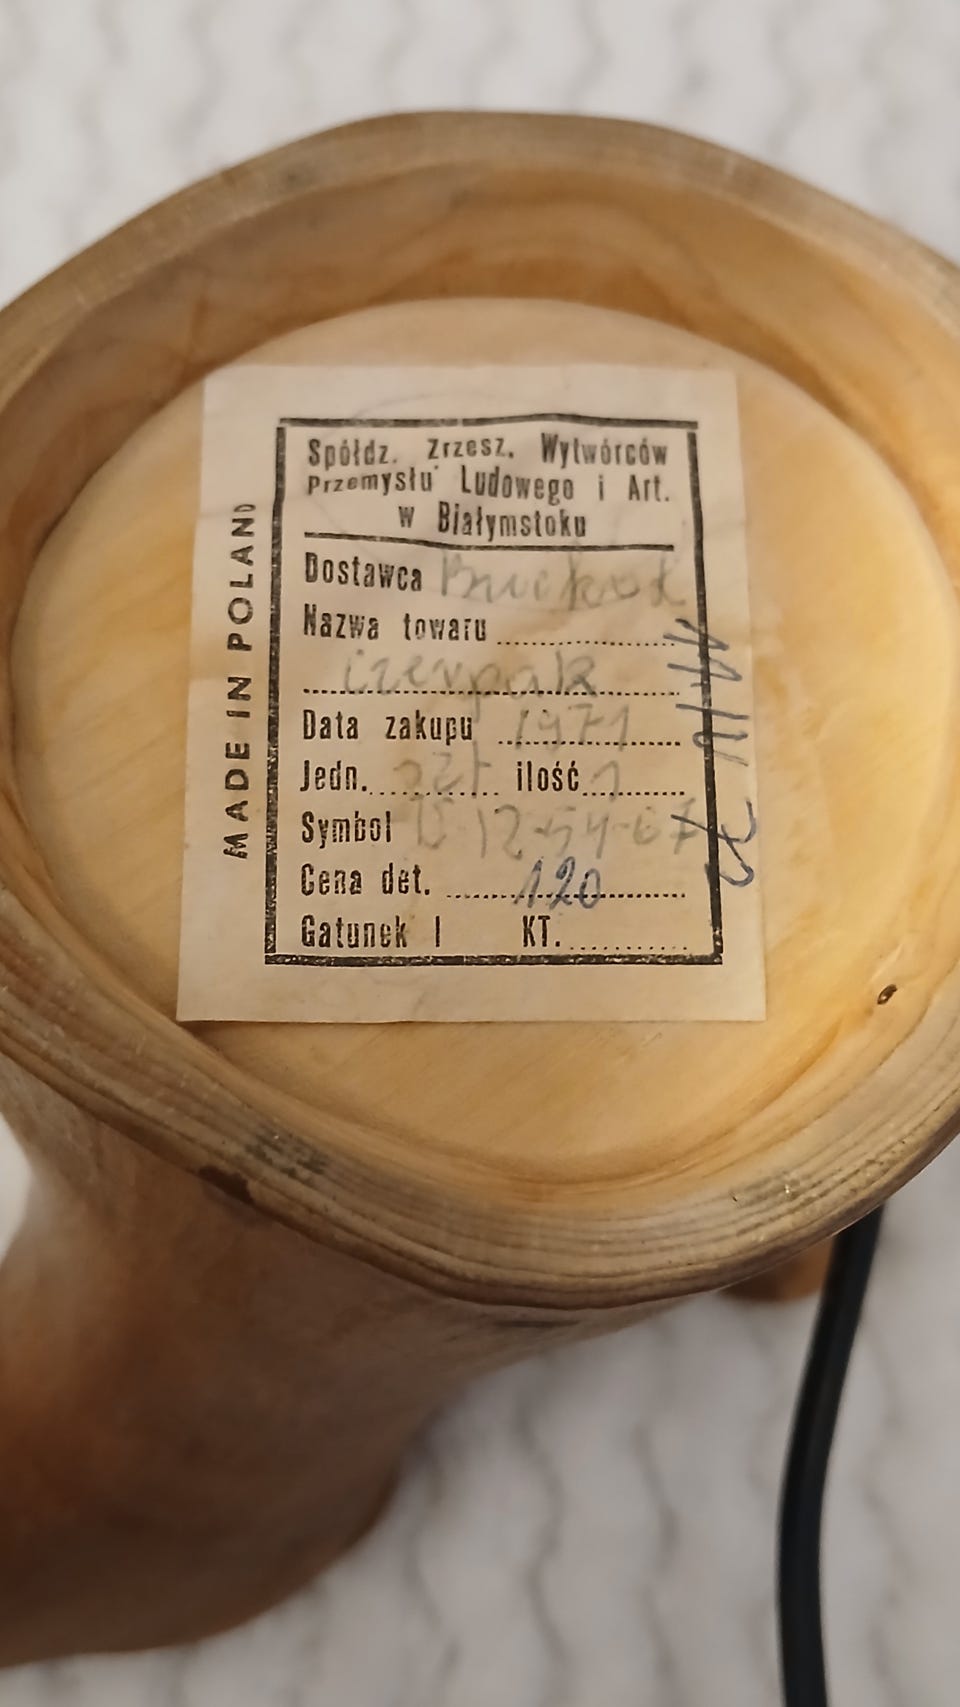 MADE IN POLAND
Spółdz. Zrzesz. Wytwórców
Przemysłu Ludowego i Art.
w Białymstoku
Dostawca
Nazwa towaru
czerpak
Data zakupu 1971
Jedn. szt ilość 1
Symbol 12-54-67
Cena det. 120
Gatunek I KT.